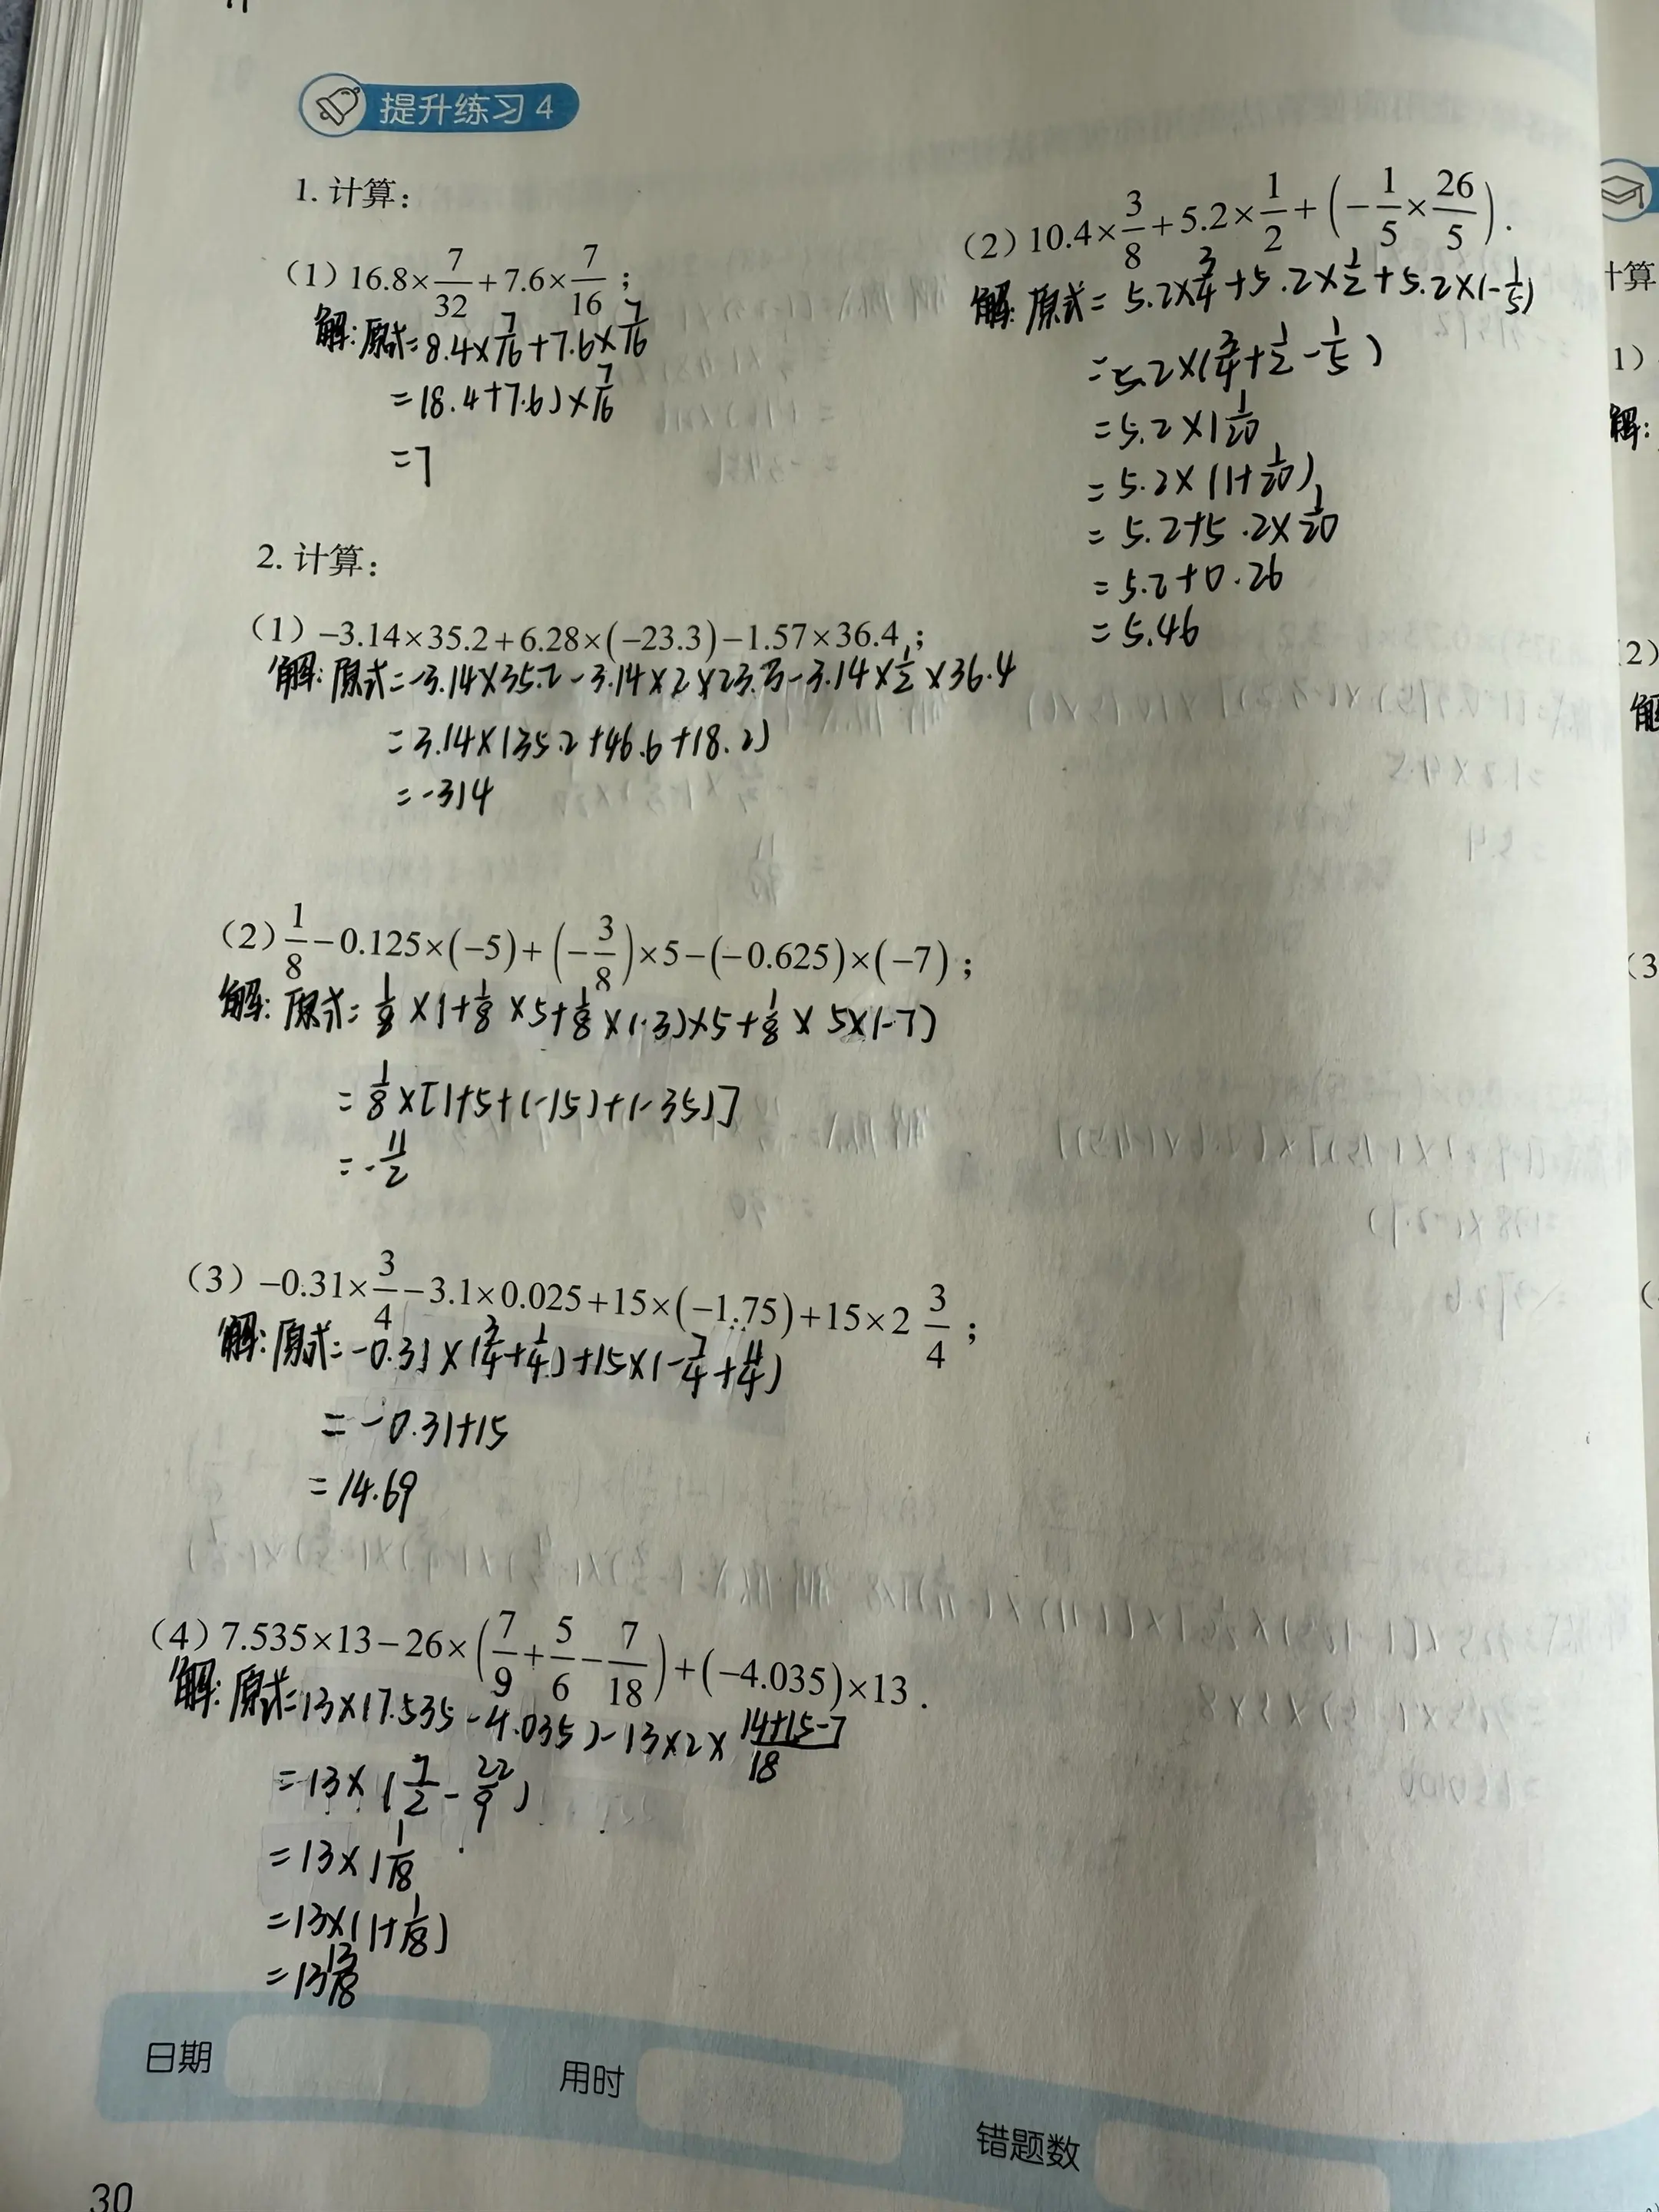 提升练习 4
1. 计算：
(1) 16.8×7/32+7.6×7/16；
解:原式=8.4×7/16+7.6×7/16
=(8.4+7.6)×7/16
=7
(2) 10.4×3/8+5.2×1/2+(-1/5×26/5).
解:原式=5.2×3/4+5.2×1/2+5.2×(-1/5)
=5.2×(3/4+1/2-1/5)
=5.2×1 1/20
=5.2×(1+1/20)
=5.2+5.2×1/20
=5.2+0.26
=5.46
2. 计算：
(1) -3.14×35.2+6.28×(-23.3)-1.57×36.4；
解:原式=-3.14×35.2-3.14×2×23.3-3.14×1/2×36.4
=3.14×(35.2+46.6+18.2)
=-314
(2) 1/8-0.125×(-5)+(-3/8)×5-(-0.625)×(-7)；
解:原式=1/8×1+1/8×5+1/8×(-3)×5+1/8×5×(-7)
=1/8×[1+5+(-15)+(-35)]
=-11/2
(3) -0.31×3/4-3.1×0.025+15×(-1.75)+15×2 3/4；
解:原式=-0.31×(3/4+1/4)+15×(-7/4+11/4)
=-0.31+15
=14.69
(4) 7.535×13-26×(7/9+5/6-7/18)+(-4.035)×13.
解:原式=13×(7.535-4.035)-13×2×(14+15-7)/18
=13×(7/2-22/9)
=13×1 1/18
=13×(1+1/18)
=13 13/18
日期
用时
错题数
30
计算
1)
解:
2)
解
(3
(